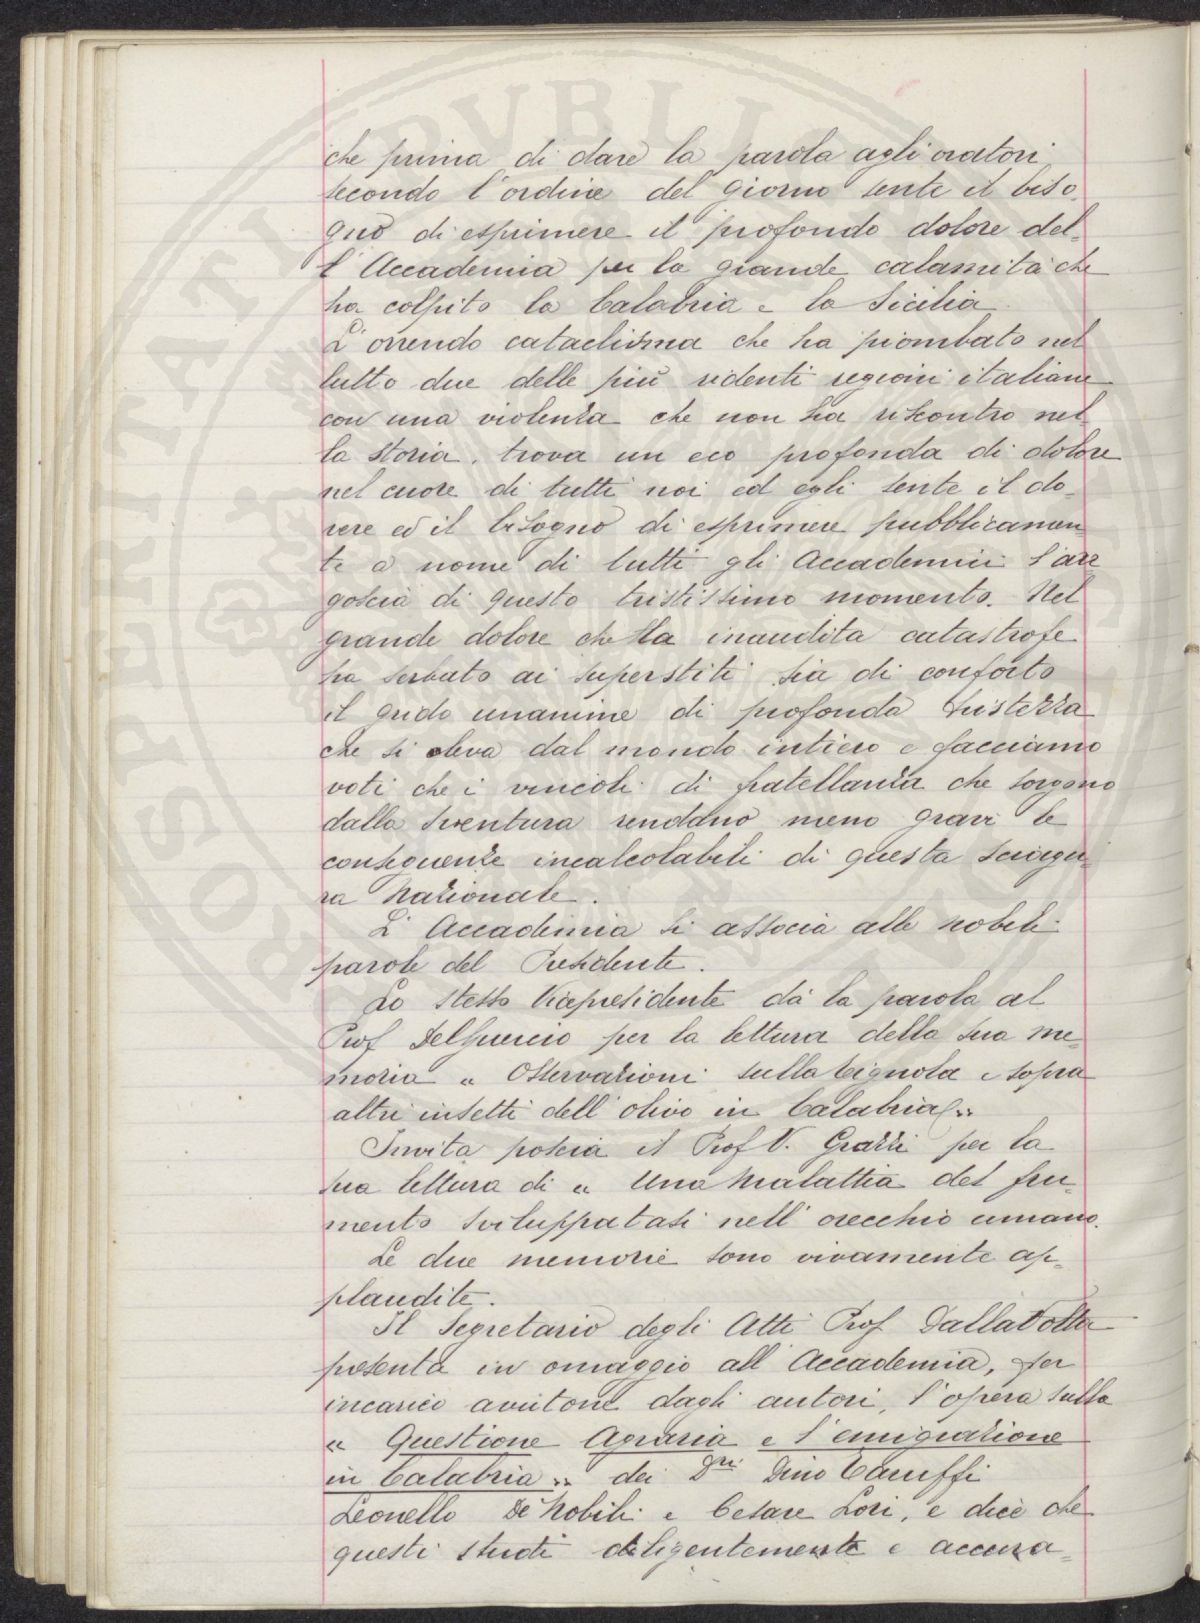 che prima di dare la parola agli oratori
secondo l'ordine del giorno sente il biso-
gno di esprimere il profondo dolore del-
l'Accademia per la grande calamità che
ha colpito la Calabria e la Sicilia.
L'orrendo cataclisma che ha piombato nel
lutto due delle più ridenti regioni italiane
con una violenza che non ha riscontro nel-
la storia, trova un eco profonda di dolore
nel cuore di tutti noi ed egli sente il do-
vere ed il bisogno di esprimere pubblicamen-
te a nome di tutti gli Accademici l'an-
goscia di questo tristissimo momento. Nel
grande dolore che la inaudita catastrofe
ha serbato ai superstiti sia di conforto
il grido unanime di profonda tristezza
che si eleva dal mondo intiero e facciamo
voti che i vincoli di fratellanza che sorgono
dalla sventura rendano meno gravi le
conseguenze incalcolabili di questa sciagu-
ra nazionale.
L'Accademia si associa alle nobili
parole del Presidente.
Lo stesso Vicepresidente dà la parola al
Prof Delguercio per la lettura della sua me-
moria « Osservazioni sulla tignola e sopra
altri insetti dell'olivo in Calabria »
Invita poscia il Prof V. Grazzi per la
sua lettura di « Una malattia del fru-
mento sviluppatasi nell'orecchio umano.
Le due memorie sono vivamente ap-
plaudite.
Il Segretario degli Atti Prof Dalla Volta
presenta in omaggio all'Accademia, per
incarico avutone dagli autori, l'opera sulla
« Questione Agraria e l'emigrazione
in Calabria » dei Dri Dino Taruffi
Leonello De Nobili e Cesare Lori, e dice che
questi studi diligentemente e accura-
SOPERNATI PVBLICAE